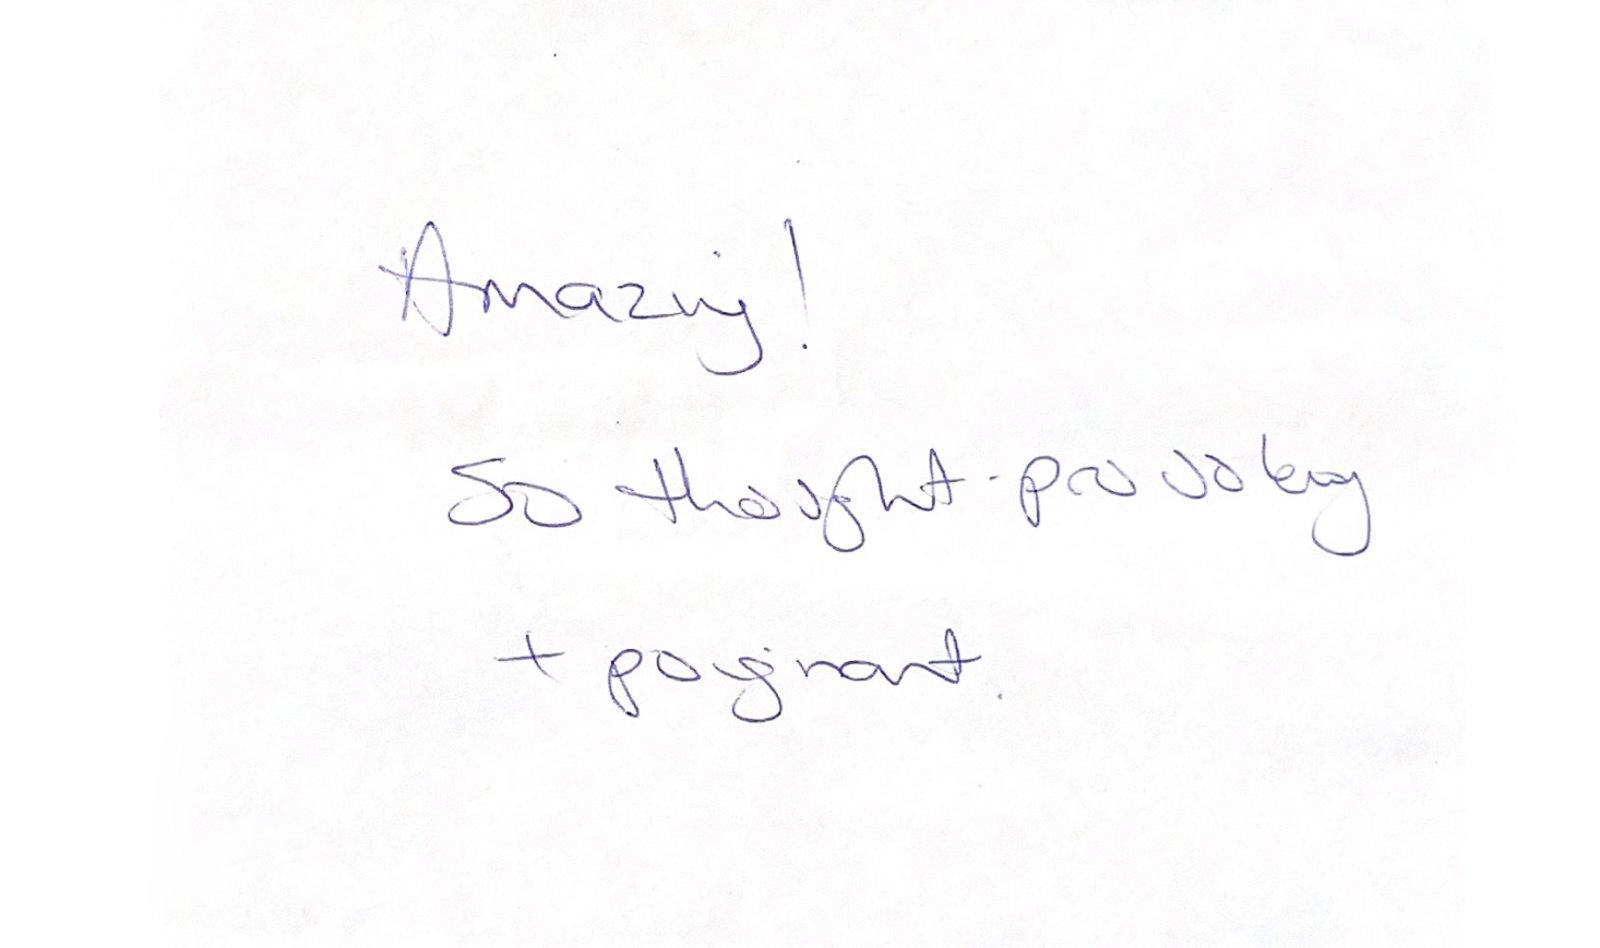 Amazing!
So thought-provoking
+ poignant.